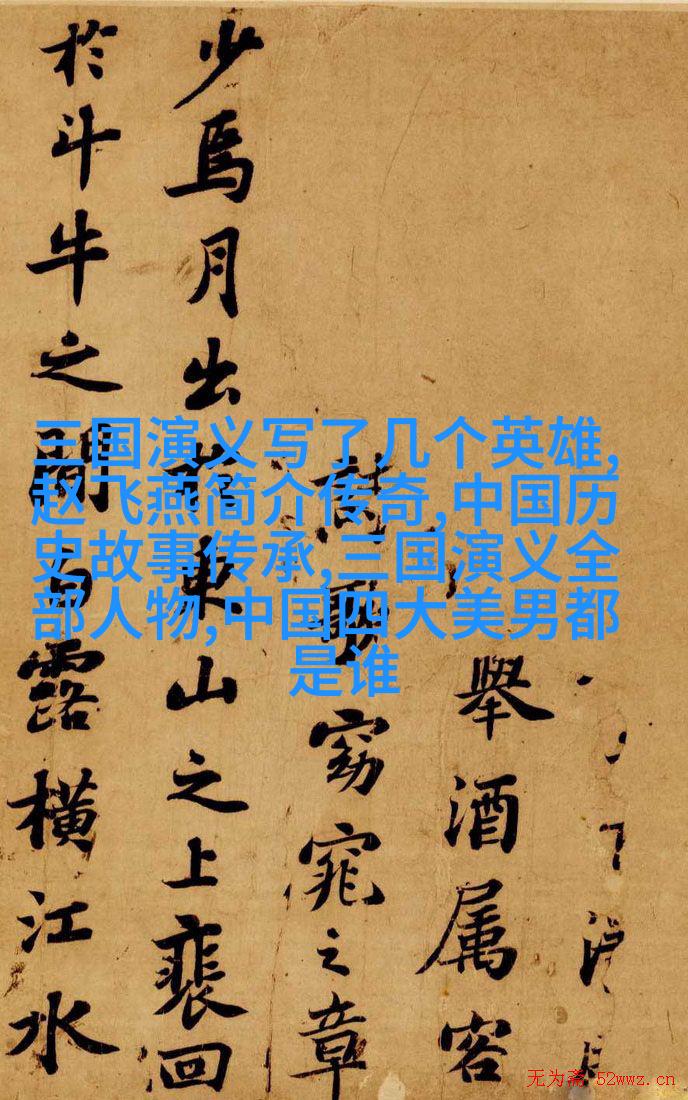 舉酒属客
歌窈窕之章
少焉月出於東山之上裴回
於斗牛之間白露橫江水
三国演义写了几个英雄,
赵飞燕简介传奇,中国历
史故事传承,三国演义全
部人物,中国四大美男都
是谁
无为斋 52wwz.cn